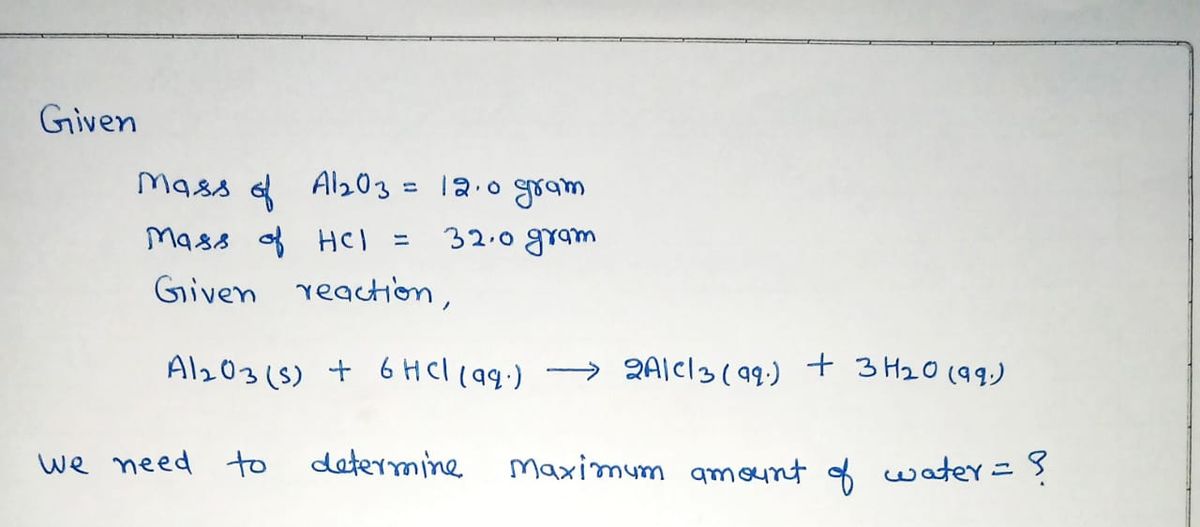 Given
Mass of Al2O3 = 12.0 gram
Mass of HCl = 32.0 gram
Given reaction,
Al2O3 (s) + 6 HCl (aq.) → 2AlCl3 (aq.) + 3 H2O (aq.)
we need to determine maximum amount of water = ?